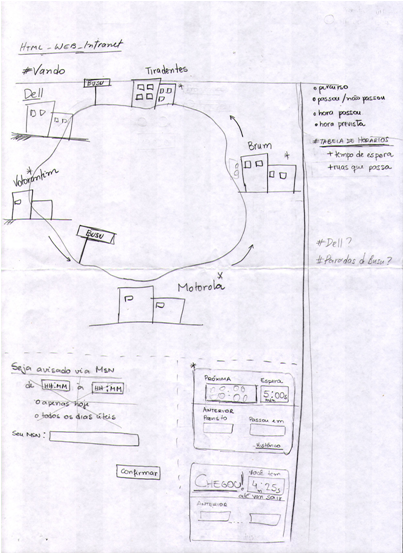 HTML - WEB - Intranet
*Vando
Tiradentes
Busu
Dell
Brum
Votorantim
Busu
Motorola
o passou/não passou
o hora passou
o hora prevista
*TABELA DE HORÁRIOS
+ tempo de espera
+ ruas que passa
*Dell?
*Paradas d Busu?
Seja avisado via MSN
de HH:MM à HH:MM
o apenas hoje
o todos os dias úteis
Seu MSN:
Confirmar
PRÓXIMA
Espera
5:00s
ANTERIOR
Passou em
Histórico
CHEGOU!
Você tem
4:25s
até van sair
ANTERIOR